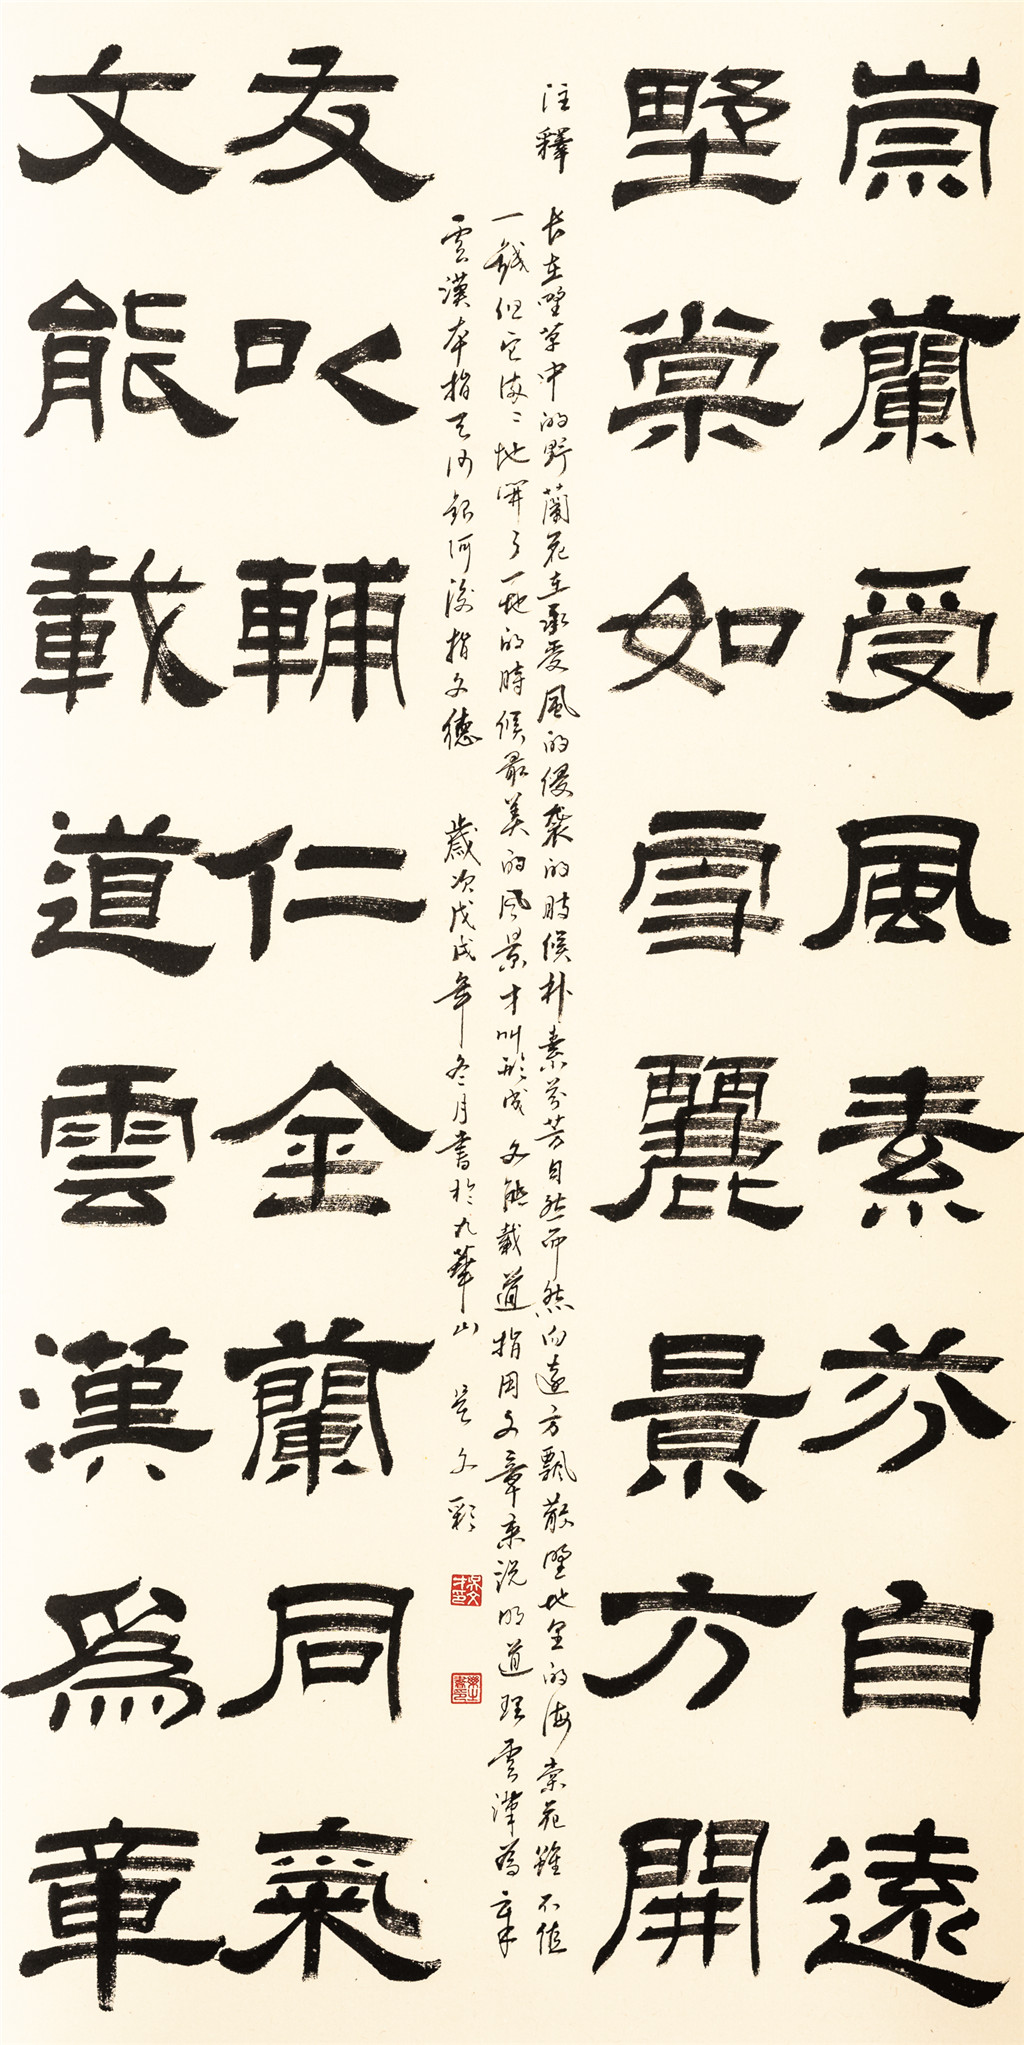 崇蘭受風素芬自遠
野棠如雪麗景方開
注釋
长在野草中的野蘭花在承受風的侵襲的時候朴素芬芳自然而然向遠方飄散野地里的海棠花雖不值
一錢但它海〻地開了一地的時候最美的风景才叫形成 文能載道指用文章來说明道理雲漢為章
雲漢本指天河銀河後指文德 歲次戊戌年冬月書於九華山 吴文彩
友以輔仁金蘭同氣
文能載道雲漢爲章